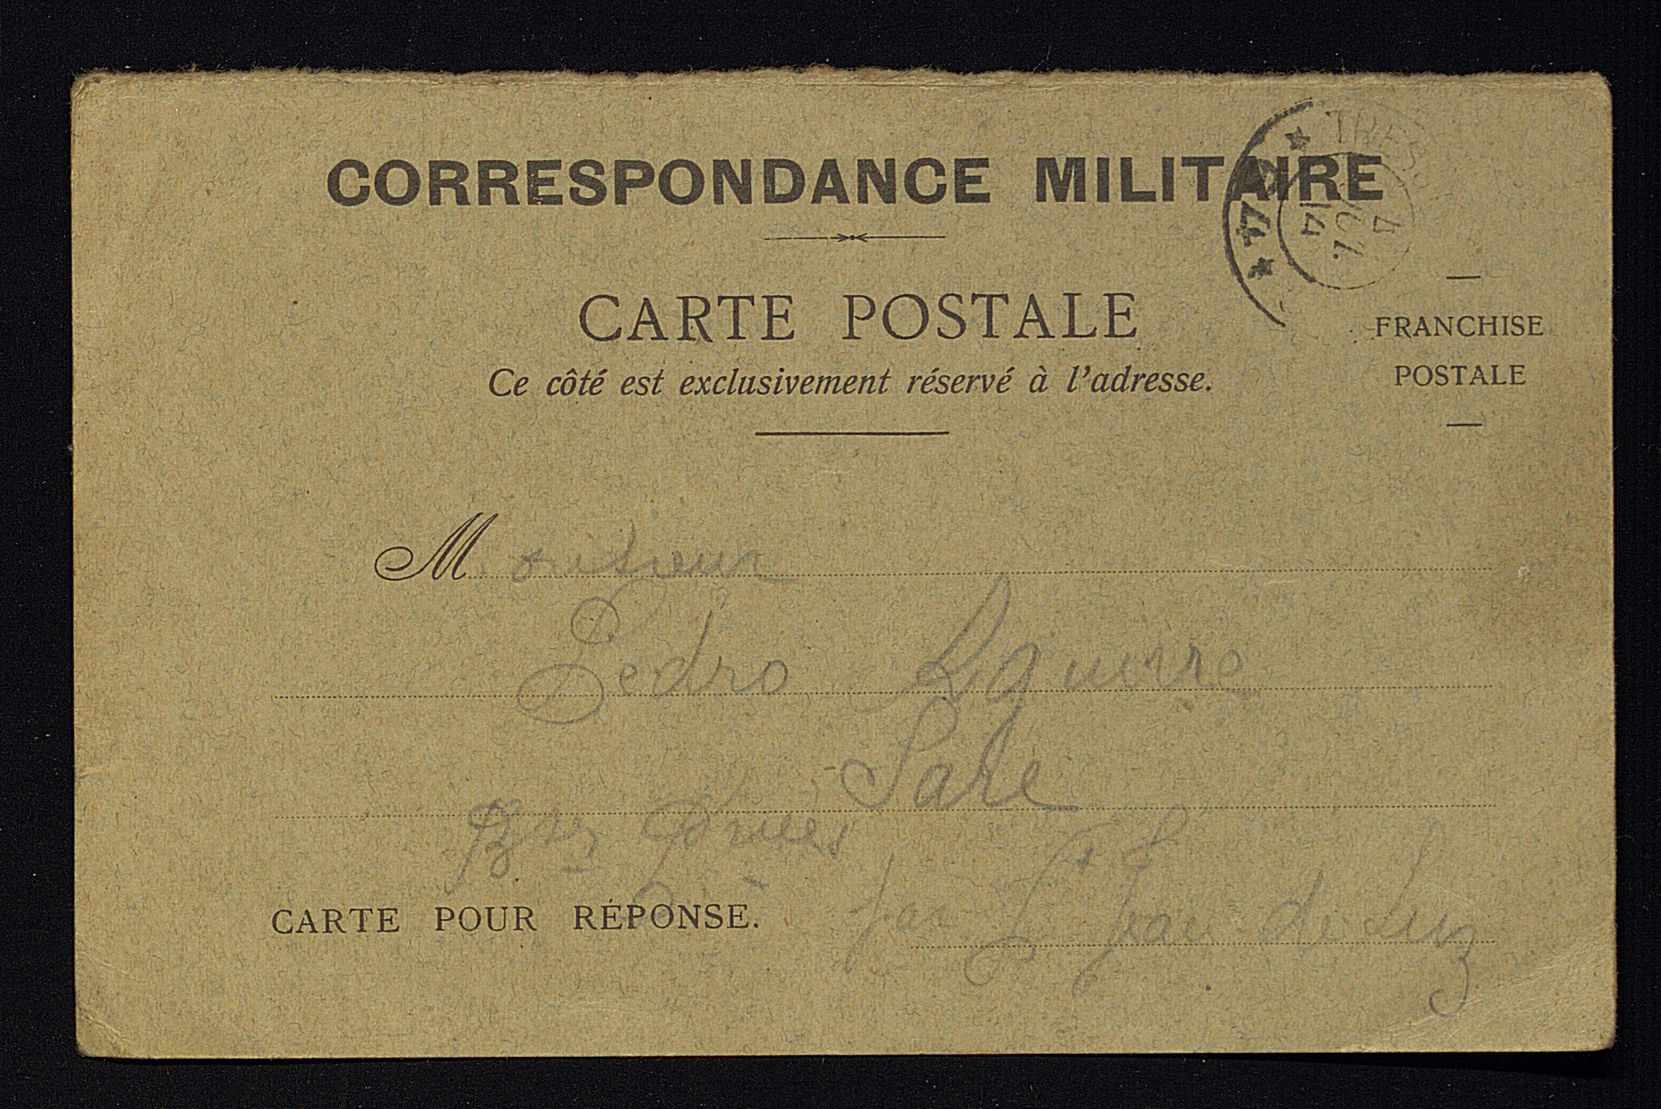 CORRESPONDANCE MILITAIRE
TRES
* 77 *
4
14
CARTE POSTALE
Ce côté est exclusivement réservé à l'adresse.
FRANCHISE
POSTALE
Monsieur
Pedro Aguirre
Sare
Bses Pyrnées
par St Jean-de-Luz
CARTE POUR RÉPONSE.